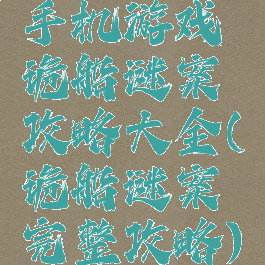 手机游戏
诡船谜案
攻略大全(
诡船谜案
完整攻略)